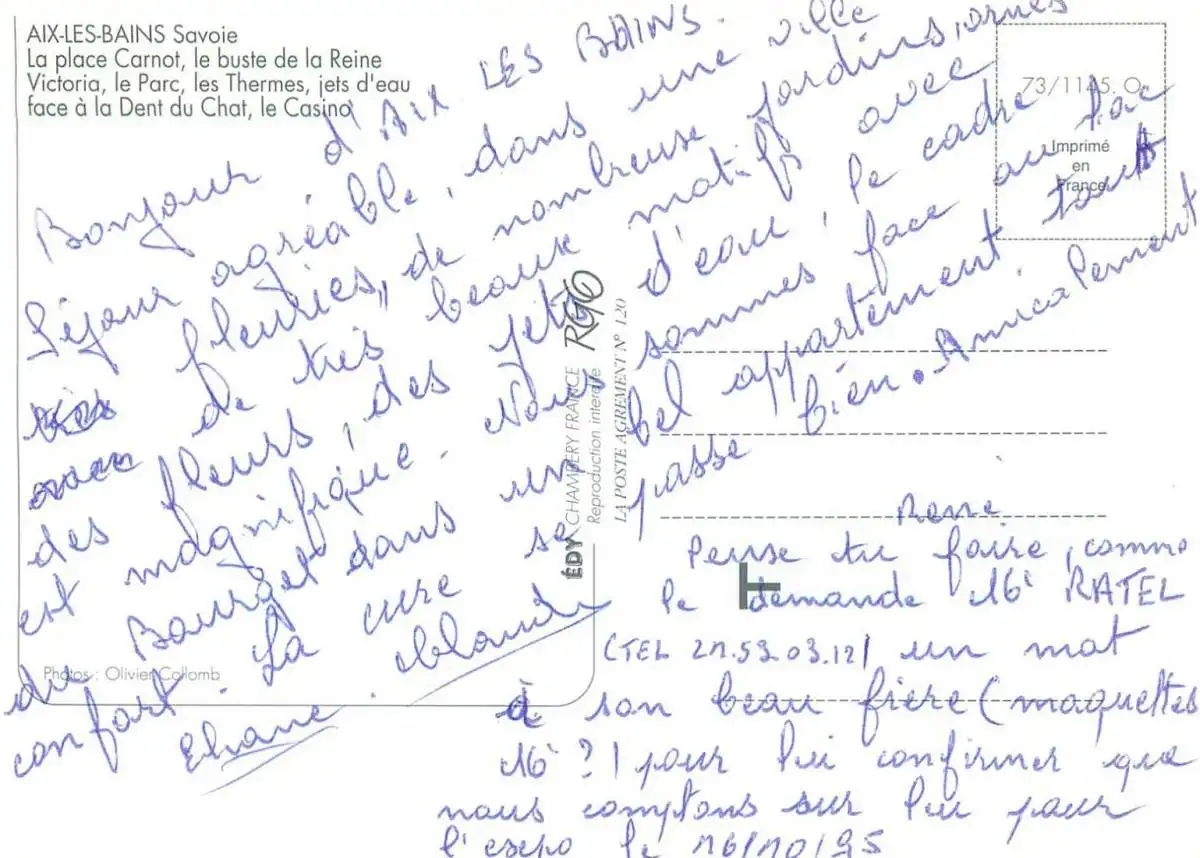 AIX-LES-BAINS Savoie
La place Carnot, le buste de la Reine
Victoria, le Parc, les Thermes, jets d'eau
face à la Dent du Chat, le Casino
73/1145. O
Imprimé
en
France
Bonjour d'AIX LES BAINS.
Séjour agréable, dans une ville
fleuries, de nombreuse jardins, ornés
de très beaux matifs avec
des fleurs, des jets d'eau, le cadre
est magnifique. Nous sommes face au lac
du Bourget dans un bel appartement, tout
confort. La cure se passe bien. Amicalement
Eliane Claude
ÉDY CHAMBERY FRANCE
Reproduction interdite
LA POSTE AGREMENT N° 120
Photos : Olivier Collomb
René
Peuse tu faire, comme
le demande Mr RATEL
(TEL 21.53.03.12) un mot
à son beau frère (maquettes
Mr ?) pour lui confirmer que
nous comptons sur lui pour
l'expo le 16/10/95